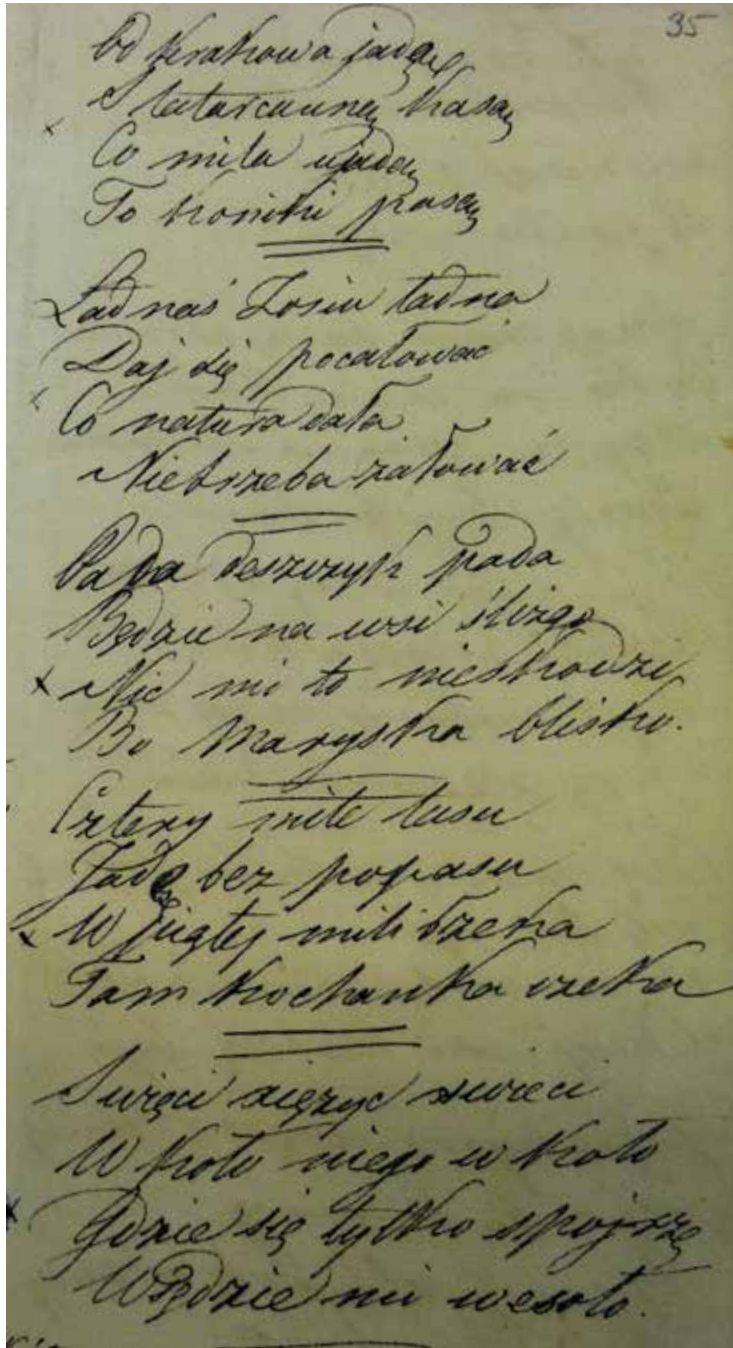 35
Od Krakowa jadą
S tatarcanną kasą
Co mila ujadą
To koniki pasą
Ładnaś Zosiu ładna
Daj się pocałować
Co natura dała
Nietrzeba żałować
Pada deszczyk pada
Będzie na wsi ślizgo
Nic mi to nieszkodzi
Bo Maryska blisko.
Cztery mile lasu
Jadę bez popasu
W piątej mili rzeka
Tam kochanka czeka
Swięci xięzyc swieci
W koło niego w koło
Gdzie się tylko spojrzę
Wszędzie mi wesoło.